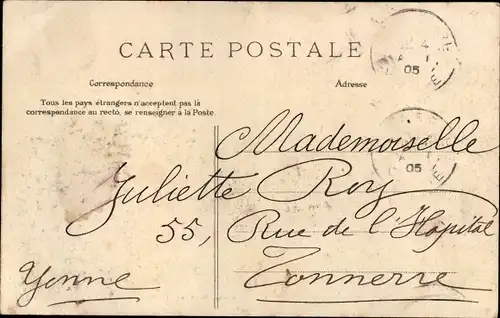 CARTE POSTALE
Correspondance
Adresse
Tous les pays étrangers n'acceptent pas la
correspondance au recto, se renseigner à la Poste
05
05
Mademoiselle
Juliette Roy
55, Rue de l'Hôpital
Yonne
Tonnerre